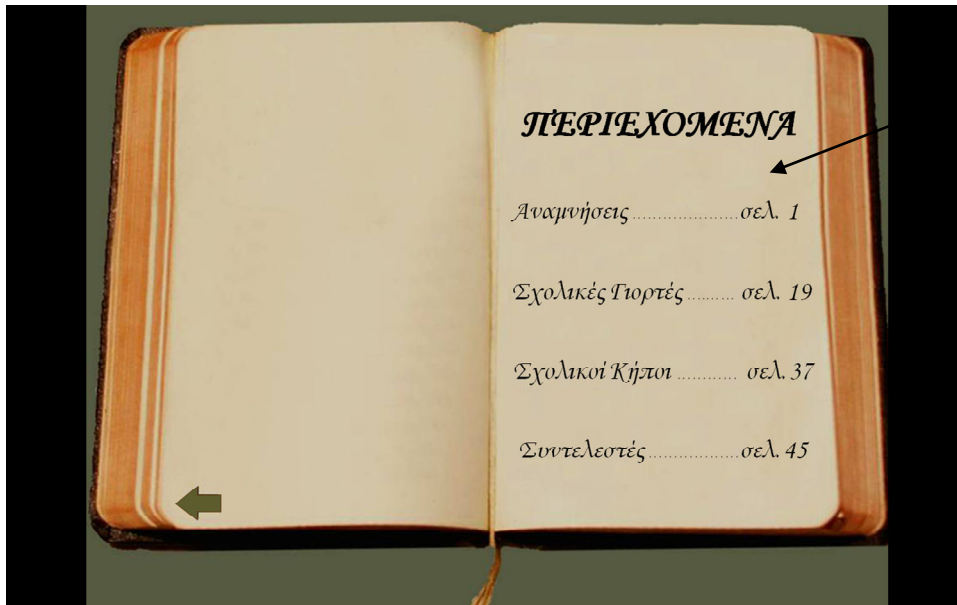 ΠΕΡΙΕΧΟΜΕΝΑ
Αναμνήσεις .....................σελ. 1
Σχολικές Γιορτές ......... σελ. 19
Σχολικοί Κήποι ............ σελ. 37
Συντελεστές ..................σελ. 45